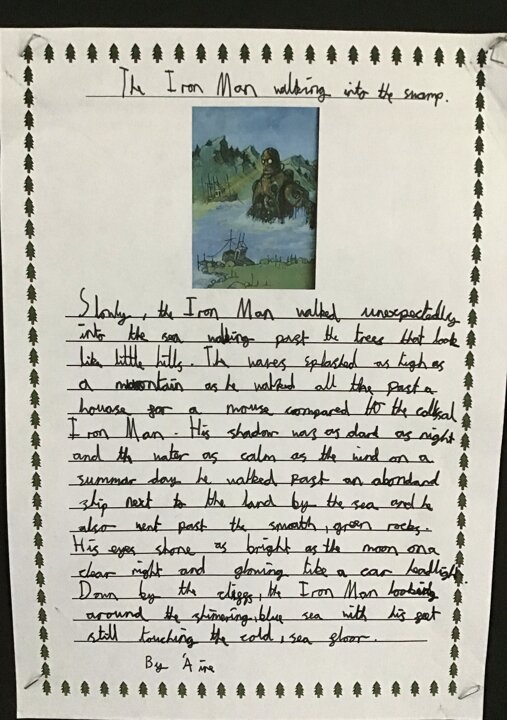 The Iron Man walking into the swamp.
Slowly, the Iron Man walked unexpectedly
into the sea walking past the trees that look
like little hills. The waves splashed as high as
a mountain as he walked all the past a
houase for a mouse compared to the collsal
Iron Man. His shadow was as dark as night
and the water as calm as the wind on a
summar day he walked past an abondand
ship next to the land by the sea and he
also went past the smooth, green rocks.
His eyes shone as bright as the moon on a
clear night and glowing like a car headlight.
Down by the cliffs, the Iron Man looking
around the shimering, blue sea with his feet
still touching the cold, sea floor.
By